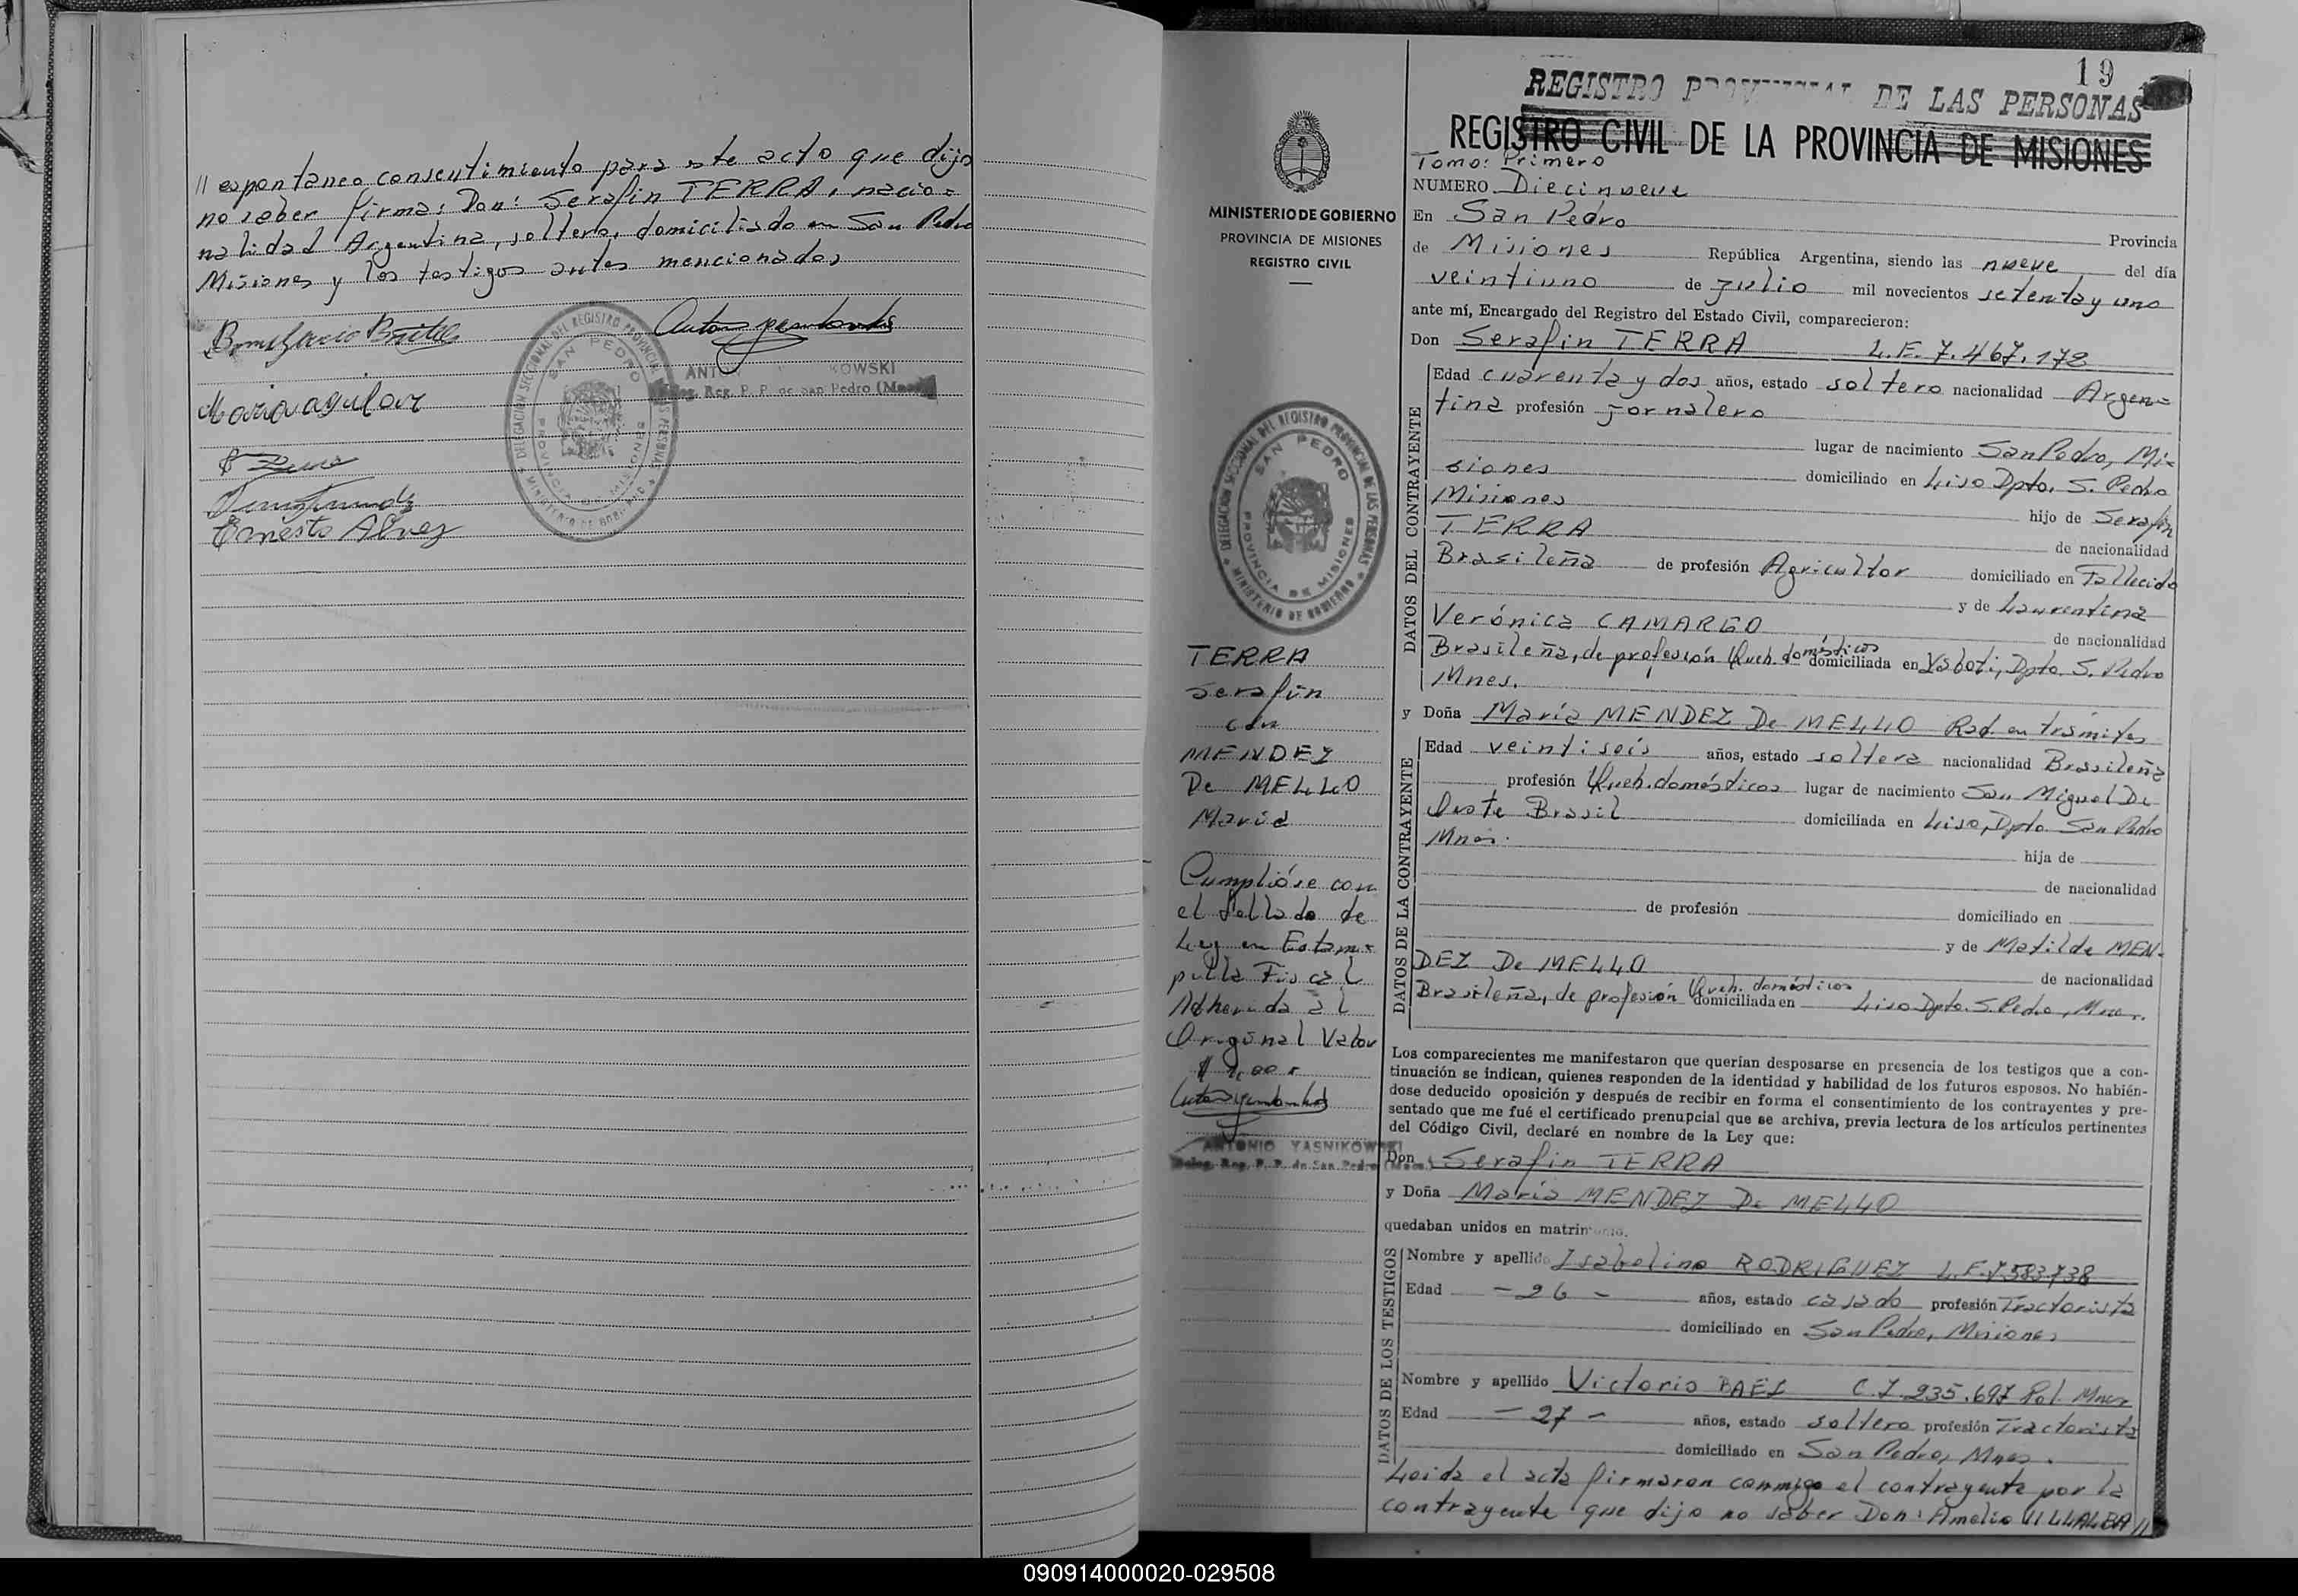 // espontaneo consentimiento para este acto que dijo
no saber firmar Don: Serafin TERRA, nacio=
nalidad Argentina, soltero, domiciliado en San Pedro
Misiones y los testigos antes mencionados
Maria aguilar
Ernesto Alvez
DELEGACION SECCIONAL DEL REGISTRO PROVINCIAL DE LAS PERSONAS
SAN PEDRO
PROVINCIA DE MISIONES
MINISTERIO DE GOBIERNO
ANT KOWSKI
Deleg. Reg. P. P. de San Pedro (Mnes.)
19
REGISTRO PROVINCIAL DE LAS PERSONAS
REGISTRO CIVIL DE LA PROVINCIA DE MISIONES
MINISTERIO DE GOBIERNO
PROVINCIA DE MISIONES
REGISTRO CIVIL
DELEGACION SECCIONAL DEL REGISTRO PROVINCIAL DE LAS PERSONAS
SAN PEDRO
PROVINCIA DE MISIONES
MINISTERIO DE GOBIERNO
TERRA
Serafin
con
MENDEZ
De MELLO
Maria
Cumplióse con
el sellado de
Ley en Estam=
pilla Fiscal
Adherida al
Original Valor
ANTONIO YASNIKOWSKI
Deleg. Reg. P. P. de San Pedro (Mnes.)
Tomo: Primero
NUMERO Diecinueve
En San Pedro Provincia
de Misiones República Argentina, siendo las nueve del día
veintiuno de Julio mil novecientos setenta y uno
ante mí, Encargado del Registro del Estado Civil, comparecieron:
Don Serafin TERRA L.E. 7.467.172
DATOS DEL CONTRAYENTE
Edad cuarenta y dos años, estado soltero nacionalidad Argen=
tina profesión jornalero
lugar de nacimiento San Pedro, Mi=
siones domiciliado en Liso Dpto. S. Pedro
Misiones hijo de Serafin
TERRA de nacionalidad
Brasileña de profesión Agricultor domiciliado en Fallecido
y de Laurentina
Verónica CAMARGO de nacionalidad
Brasileña, de profesión Queh. domésticos domiciliada en Yaboti, Dpto. S. Pedro
Mnes.
y Doña Maria MENDEZ De MELLO Rad. en trámites
DATOS DE LA CONTRAYENTE
Edad veintiseis años, estado soltera nacionalidad Brasileña
profesión Queh. domésticos lugar de nacimiento San Miguel De
Oeste Brasil domiciliada en Liso, Dpto. San Pedro
Mnes. hija de
de nacionalidad
de profesión domiciliado en
y de Matilde MEN-
DEZ De MELLO de nacionalidad
Brasileña, de profesión Queh. domésticos domiciliada en Liso Dpto. S. Pedro, Mnes.
Los comparecientes me manifestaron que querían desposarse en presencia de los testigos que a con-
tinuación se indican, quienes responden de la identidad y habilidad de los futuros esposos. No habién-
dose deducido oposición y después de recibir en forma el consentimiento de los contrayentes y pre-
sentado que me fué el certificado prenupcial que se archiva, previa lectura de los artículos pertinentes
del Código Civil, declaré en nombre de la Ley que:
Don Serafin TERRA
y Doña Maria MENDEZ De MELLO
quedaban unidos en matrimonio.
DATOS DE LOS TESTIGOS
Nombre y apellido Isabelino RODRIGUEZ L.E. 7.583.738
Edad - 26 - años, estado casado profesión Tractorista
domiciliado en San Pedro, Misiones
Nombre y apellido Victorio BAEZ C.I. 235.697 Pol. Mnes
Edad - 27 - años, estado soltero profesión Tractorista
domiciliado en San Pedro, Mnes.
Leida el acta firmaron conmigo el contrayente por la
contrayente que dijo no saber Don: Amelio VILLALBA //
090914000020-029508